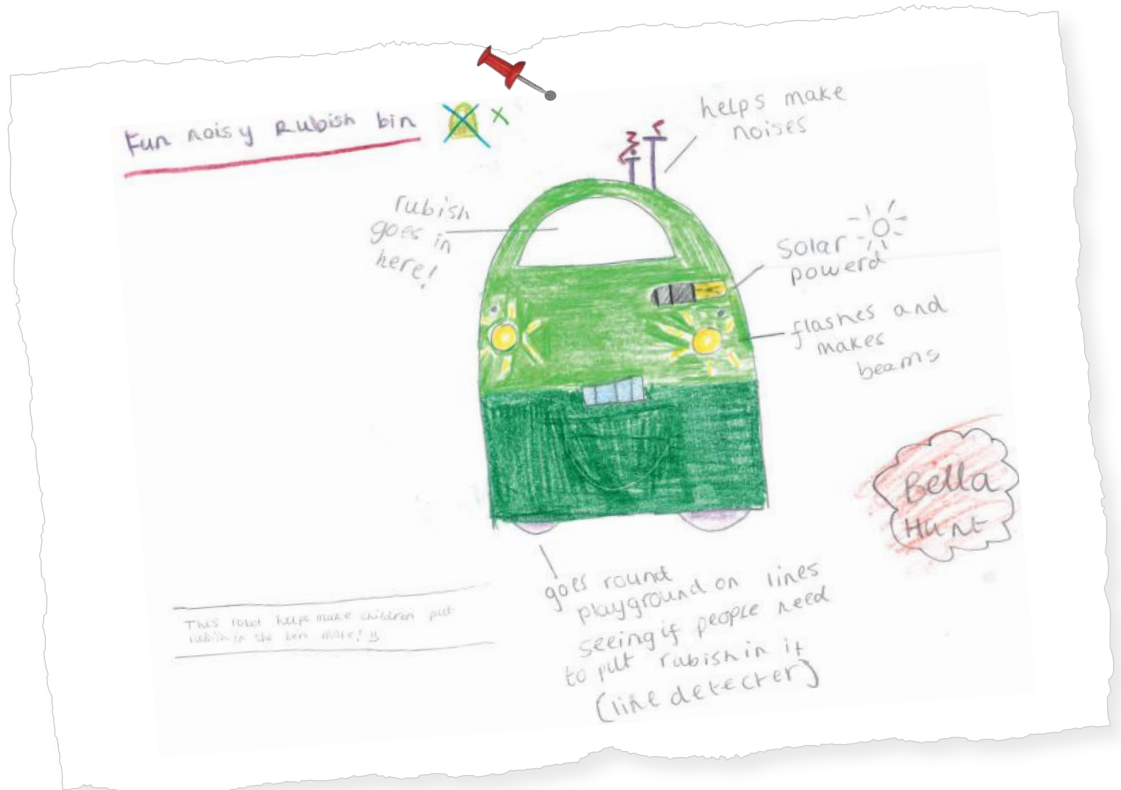 Fun noisy Rubish bin
helps make
noises
rubish
goes in
here!
Solar
powerd
flashes and
makes
beams
Bella
Hunt
goes round
playground on lines
seeing if people need
to put rubish in it
(line detecter)
This robot helps make children put
rubish in the bin more!